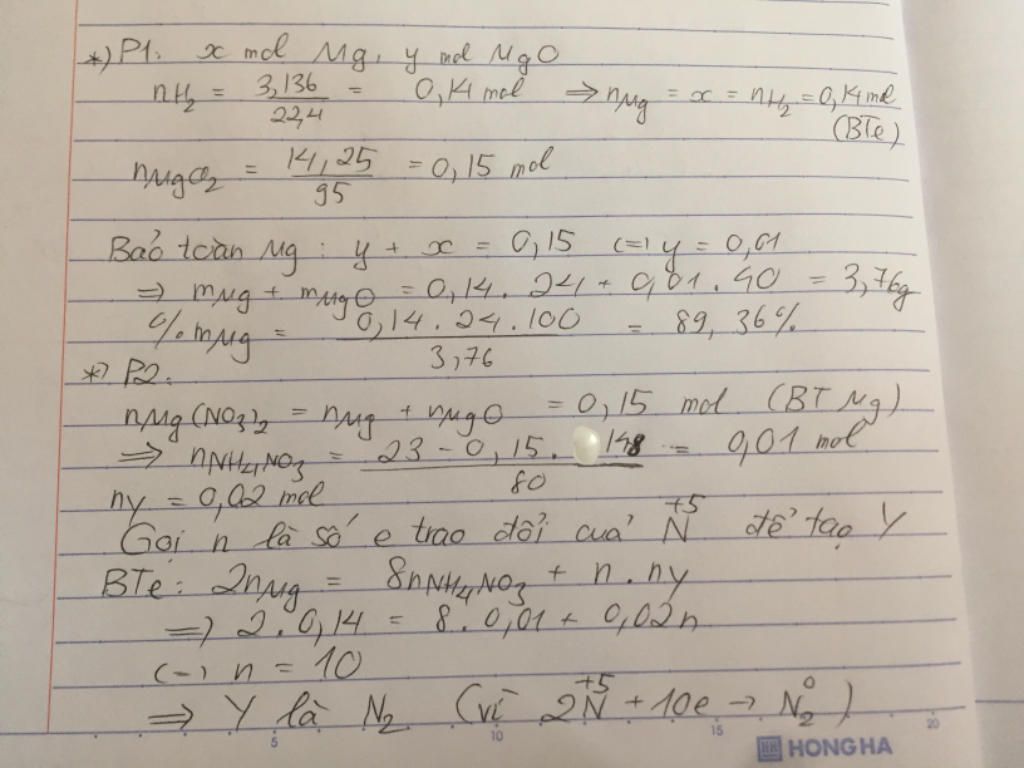 *) P1: x mol Mg, y mol MgO
nH₂ = 3,136 / 22,4 = 0,14 mol ⇒ nMg = x = nH₂ = 0,14 mol
(BTe)
nMgCl₂ = 14,25 / 95 = 0,15 mol
Bảo toàn Mg: y + x = 0,15 (=) y = 0,01
⇒ mMg + mMgO = 0,14. 24 + 0,01. 40 = 3,76g
% mMg = 0,14. 24. 100 / 3,76 = 89,36%
*) P2:
nMg(NO₃)₂ = nMg + nMgO = 0,15 mol (BT Mg)
⇒ nNH₄NO₃ = 23 - 0,15. 148 / 80 = 0,01 mol
ny = 0,02 mol
Gọi n là số e trao đổi của N⁺⁵ để tạo Y
BTe: 2nMg = 8nNH₄NO₃ + n. ny
=) 2. 0,14 = 8. 0,01 + 0,02n
(-) n = 10
⇒ Y là N₂ (vì 2N⁺⁵ + 10e → N₂⁰)
5 10 15 20
HH HONG HA